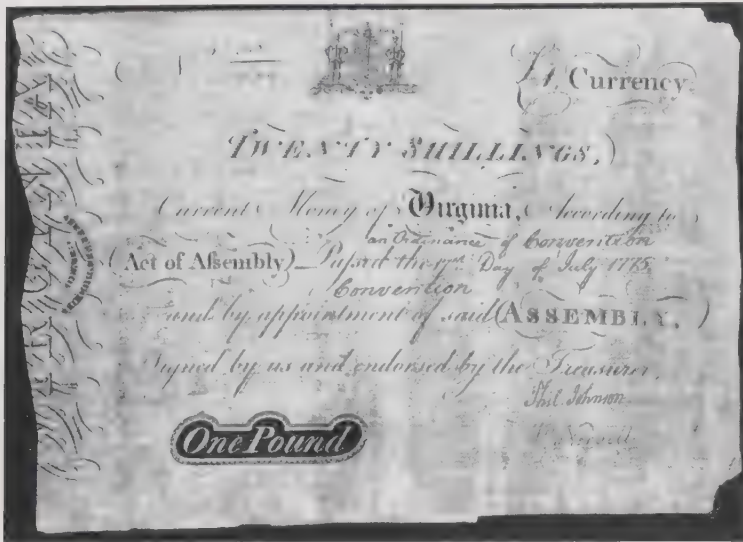 £1, Currency.
TWENTY SHILLINGS,
Current Money of Virginia, According to
an Ordinance of Convention
Act of Assembly Passed the Day of July 1775.
Convention
Fund by appointment of said ASSEMBLY,
Signed by us and endorsed by the Treasurer,
Phil. Johnson
One Pound